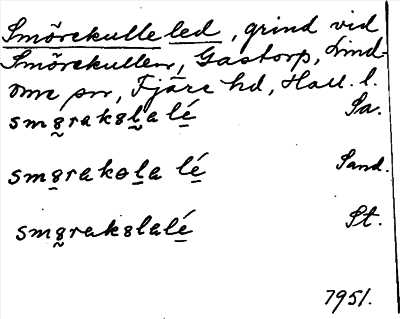 Smörekulle led, grind vid
Smörekullen, Gastorp, Lind-
ome sn, Fjäre hd, Hall. l.
smo̰rakol̰a lé̱ Sa.
smo̱rakol̰a lé̱ Sand.
smo̰rakolalé̱ St.
1951.